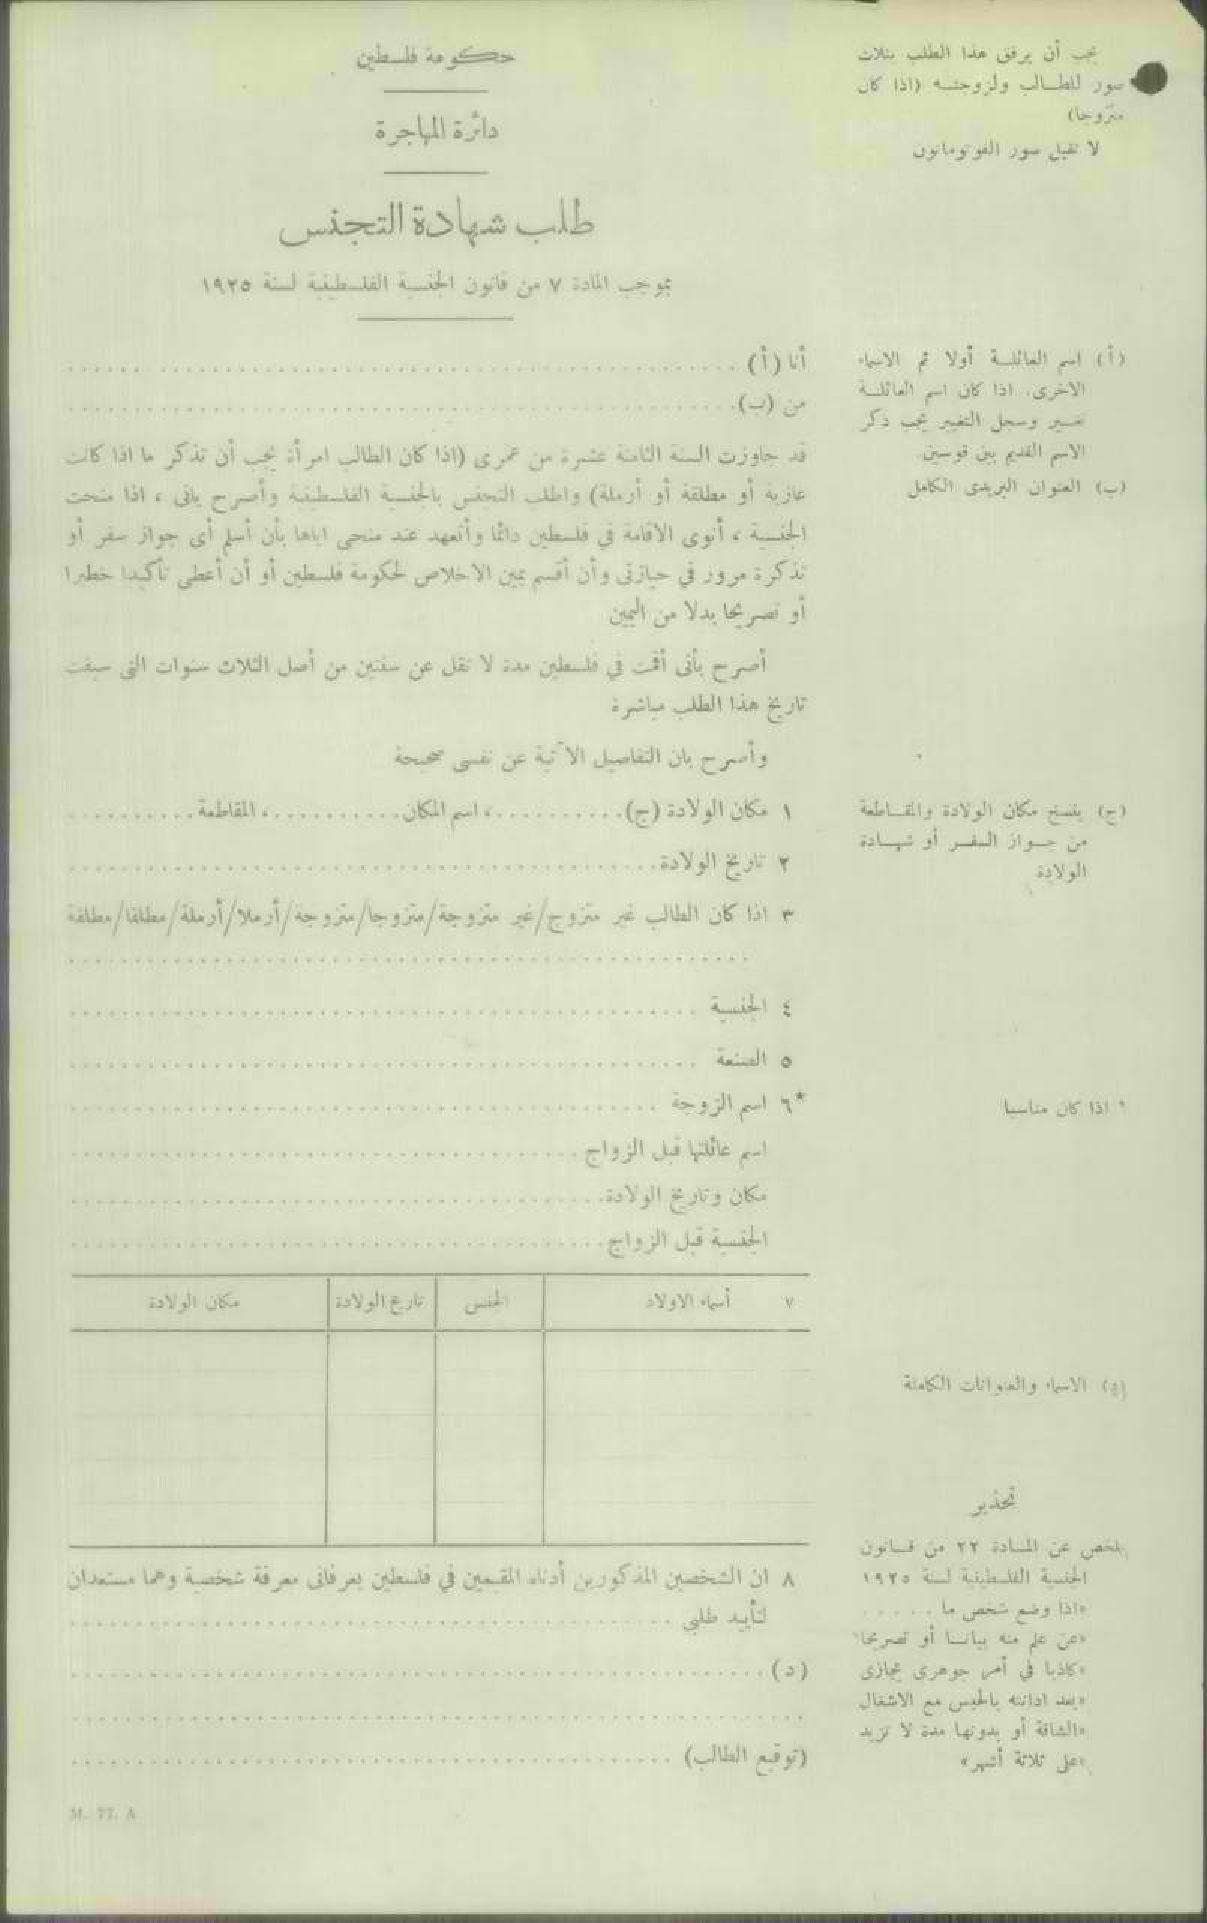 يجب أن يرفق هذا الطلب بثلاث
صور للطالب ولزوجته (اذا كان
متزوجا)
لا تقبل صور الفوتوماتون
حكومة فلسطين
دائرة المهاجرة
طلب شهادة التجنس
بموجب المادة ٧ من قانون الجنسية الفلسطينية لسنة ١٩٢٥
أنا (أ) ........................................
من (ب) ........................................
(أ) اسم العائلة أولا ثم الاسماء
الاخرى. اذا كان اسم العائلة
تغير وسجل التغيير يجب ذكر
الاسم القديم بين قوسين.
(ب) العنوان البريدى الكامل
قد جاوزت السنة الثامنة عشرة من عمرى (اذا كان الطالب امرأة يجب أن تذكر ما اذا كانت
عازبة أو مطلقة أو أرملة) واطلب التجنس بالجنسية الفلسطينية وأصرح بانى ، اذا منحت
الجنسية ، أنوى الاقامة في فلسطين دائما وأتعهد عند منحى اياها بأن أسلم أى جواز سفر أو
تذكرة مرور في حيازتى وأن أقسم يمين الاخلاص لحكومة فلسطين أو أن أعطى تأكيدا خطيرا
أو تصريحا بدلا من اليمين
أصرح بأنى أقمت في فلسطين مدة لا تقل عن سنتين من أصل الثلاث سنوات التى سبقت
تاريخ هذا الطلب مباشرة
وأصرح بان التفاصيل الآتية عن نفسى صحيحة
١ مكان الولادة (ج) ..........، اسم المكان ..........، المقاطعة ..........
(ج) ينسخ مكان الولادة والمقاطعة
من جواز السفر أو شهادة
الولادة
٢ تاريخ الولادة ........................................
٣ اذا كان الطالب غير متزوج/غير متزوجة/متزوجا/متزوجة/أرملا/أرملة/مطلقا/مطلقة
........................................
٤ الجنسية ........................................
٥ الصنعة ........................................
*٦ اسم الزوجة ........................................
* اذا كان مناسبا
اسم عائلتها قبل الزواج ........................................
مكان وتاريخ الولادة ........................................
الجنسية قبل الزواج ........................................
٧ أسماء الاولاد الجنس تاريخ الولادة مكان الولادة
(د) الاسماء والعنوانات الكاملة
٨ ان الشخصين المذكورين أدناه المقيمين في فلسطين يعرفانى معرفة شخصية وهما مستعدان
لتأييد طلبي ........................................
(د) ........................................
........................................
(توقيع الطالب) ........................................
تحذير
ملخص عن المادة ٢٢ من قانون
الجنسية الفلسطينية لسنة ١٩٢٥
«اذا وضع شخص ما .....
«عن علم منه بيانا أو تصريحا
«كاذبا في أمر جوهرى يجازى
«بعد ادانته بالحبس مع الاشغال
«الشاقة أو بدونها مدة لا تزيد
«على ثلاثة أشهر»
M. 77. A